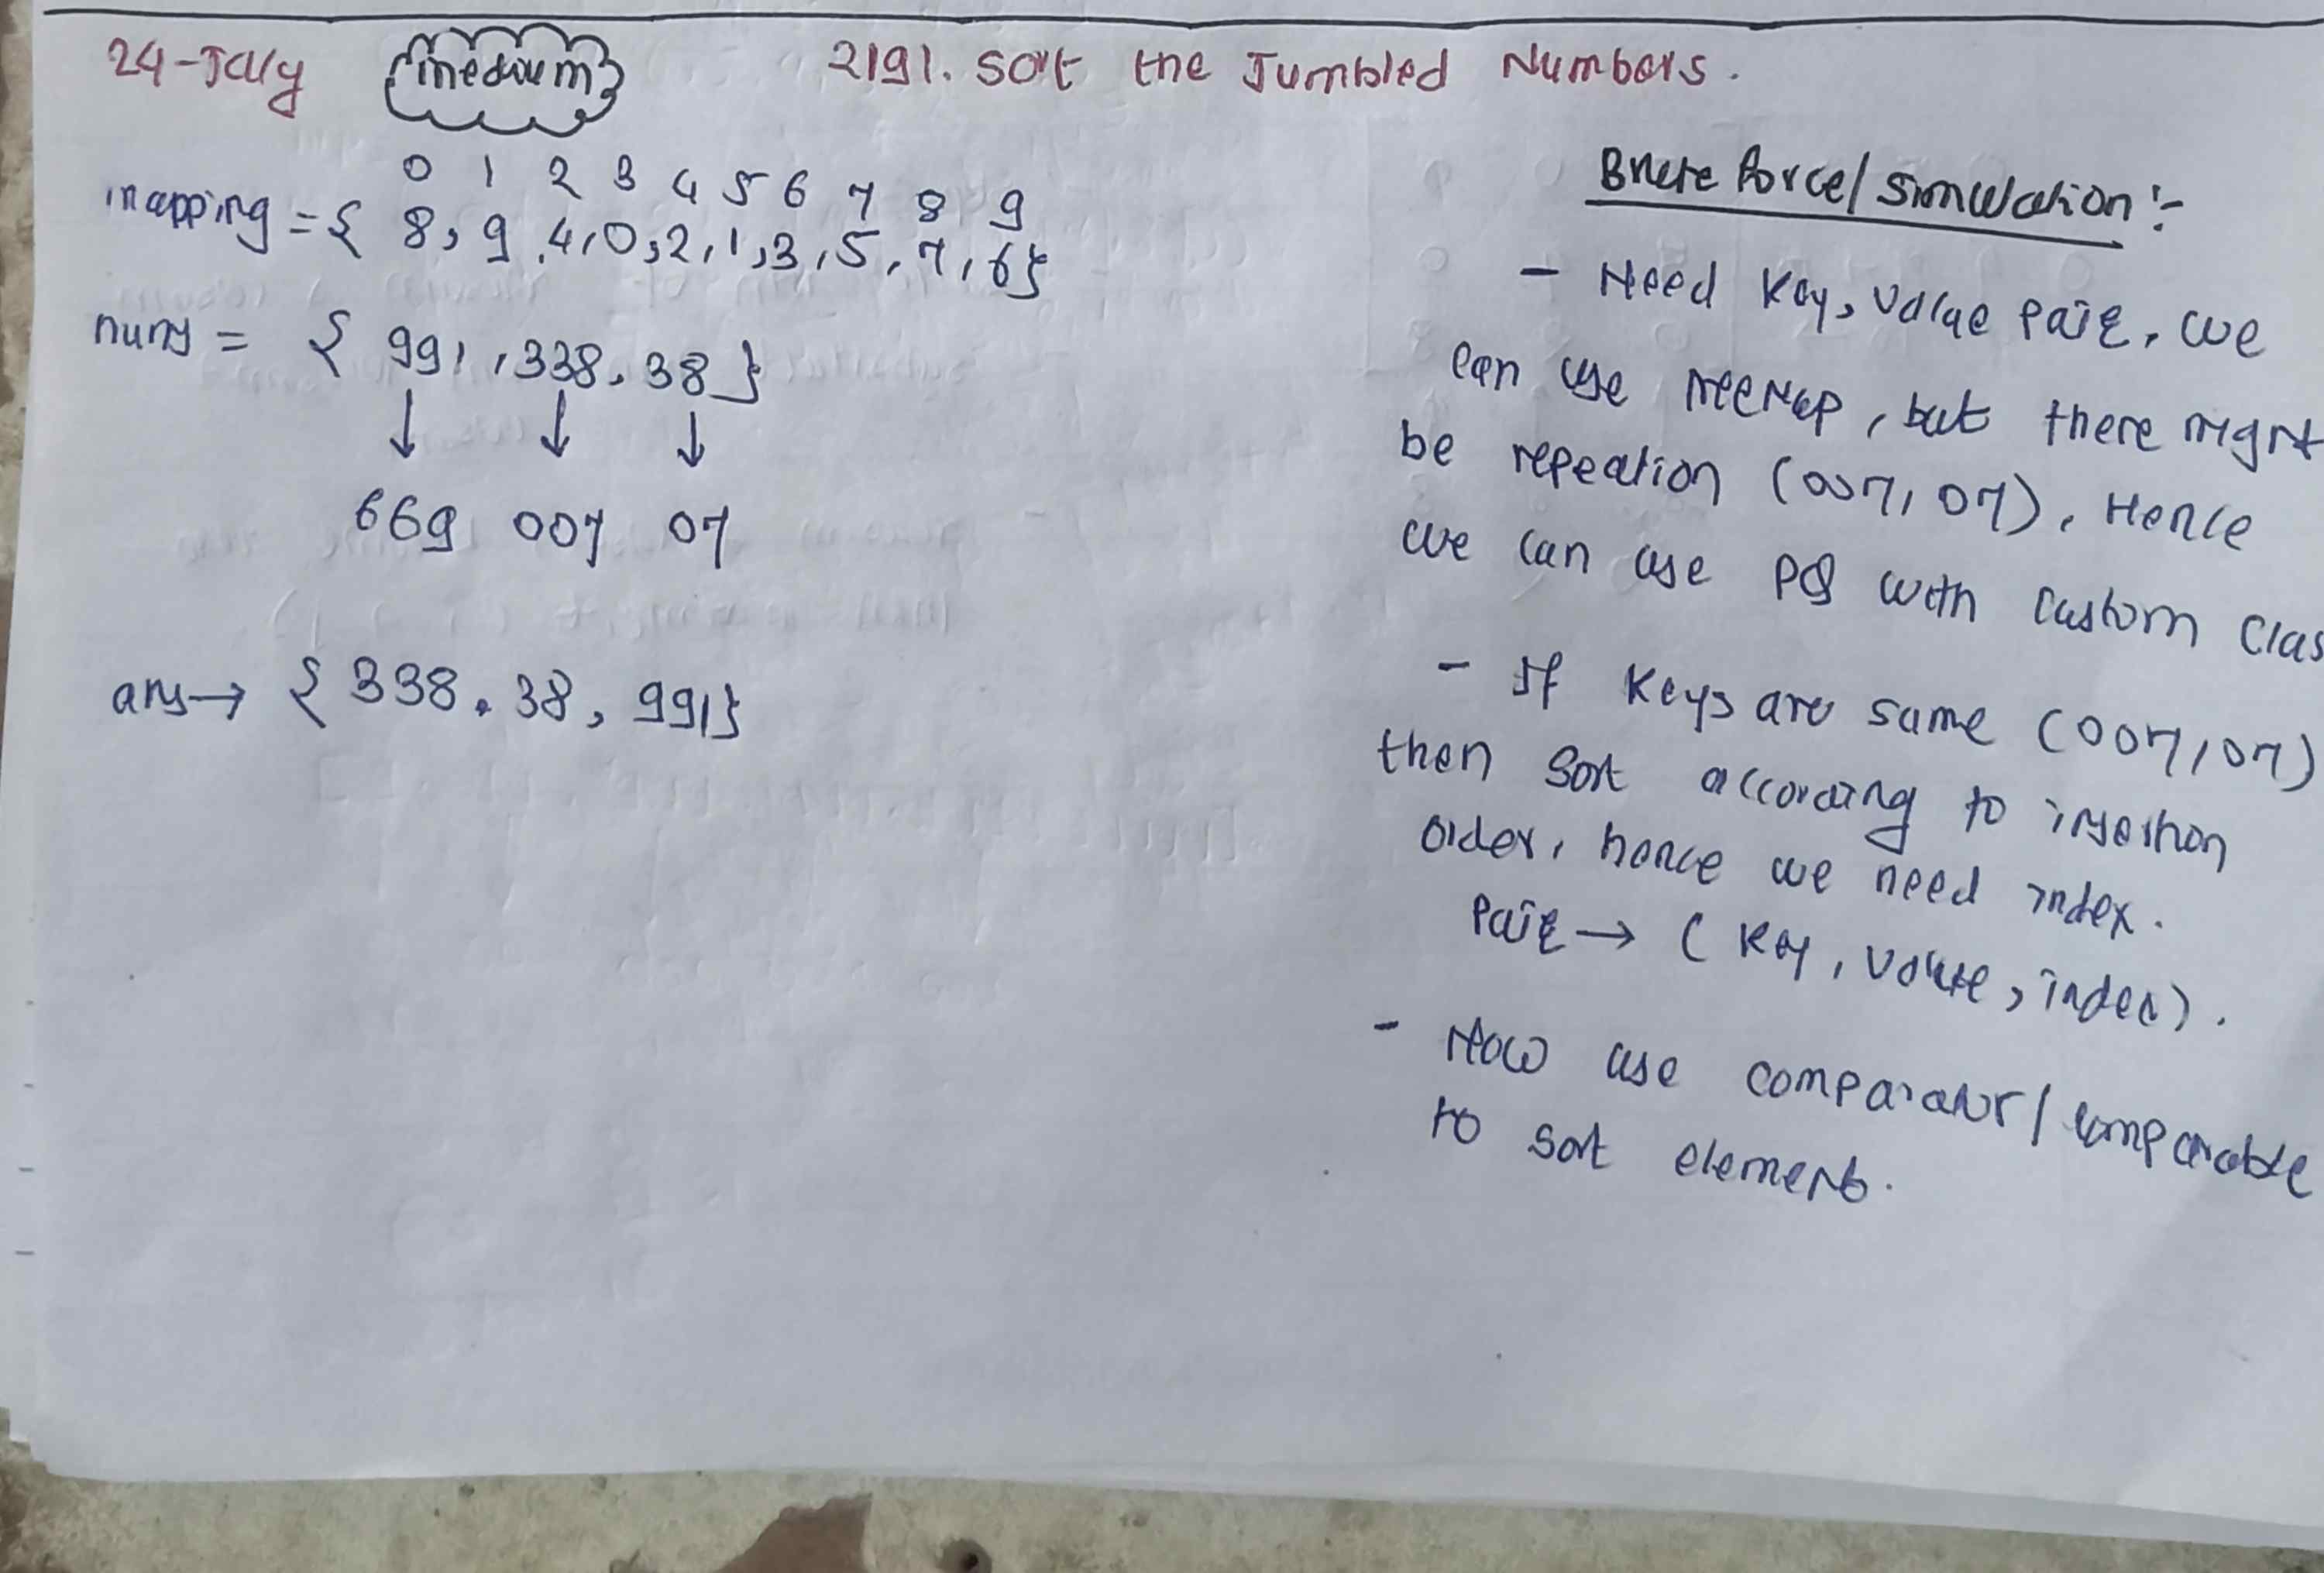 24-July medium 2191. Sort the Jumbled Numbers.
0 1 2 3 4 5 6 7 8 9
mapping = { 8, 9, 4, 0, 2, 1, 3, 5, 7, 6}
nums = { 991, 338, 38 }
↓ ↓ ↓
669 007 07
ans → { 338, 38, 991}
Brute Force/Simulation :-
- Need Key, Value Pair, we
can use TreeMap, but there might
be repeation (007, 07), Hence
we can use PQ with custom Clas
- If Keys are same (007, 07)
then sort according to insertion
order, hence we need index.
Pair → ( Key, value, index).
- Now use comparator/comparable
to sort elements.